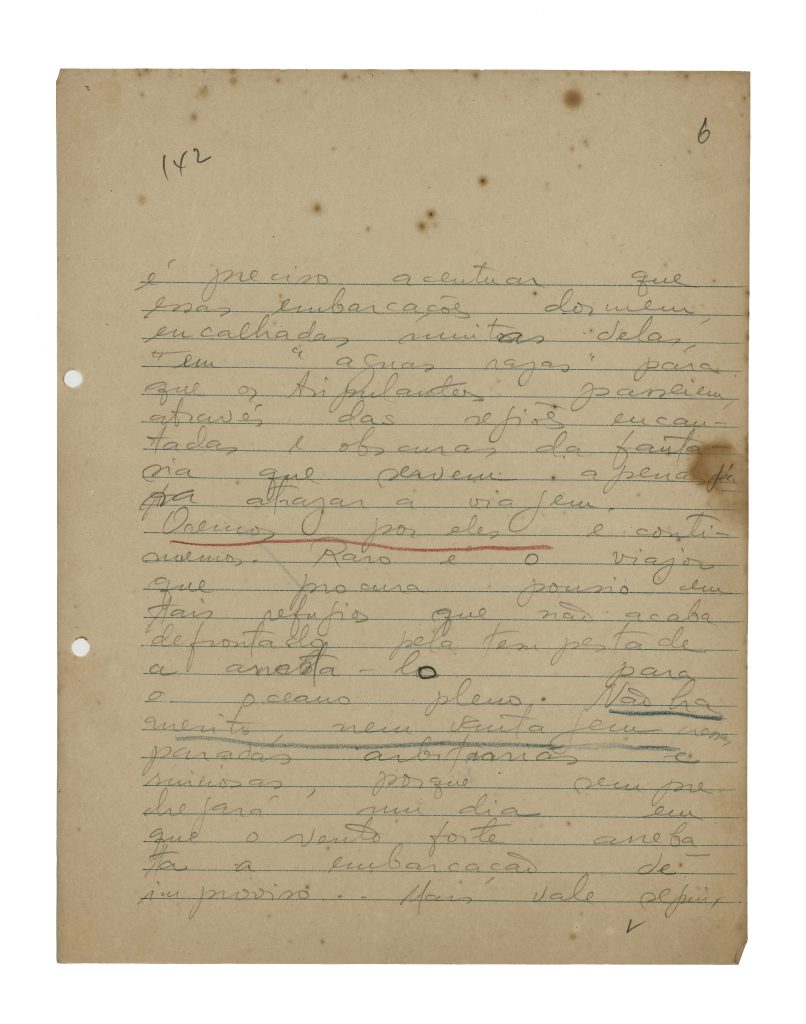 6
142
é preciso acentuar que
essas embarcações dormem,
encalhadas muitas delas,
em "aguas rasas" para
que os tripulantes passeiem,
através das regiões encan-
tadas e obscuras da fanta-
sia que servem apenas
pra atrazar a viagem.
Oremos por eles e conti-
nuemos. Raro é o viajor
que procura pousio em
tais refugios que não acaba
defrontado pela tempestade
a arrasta-lo para
o oceano pleno. Não ha
merito, nem vantagem nessas
paradas arbitrarias e
silenciosas, porque sempre
chegará um dia em
que o vento forte arreba-
ta a embarcação de
improviso... Mais vale seguir,